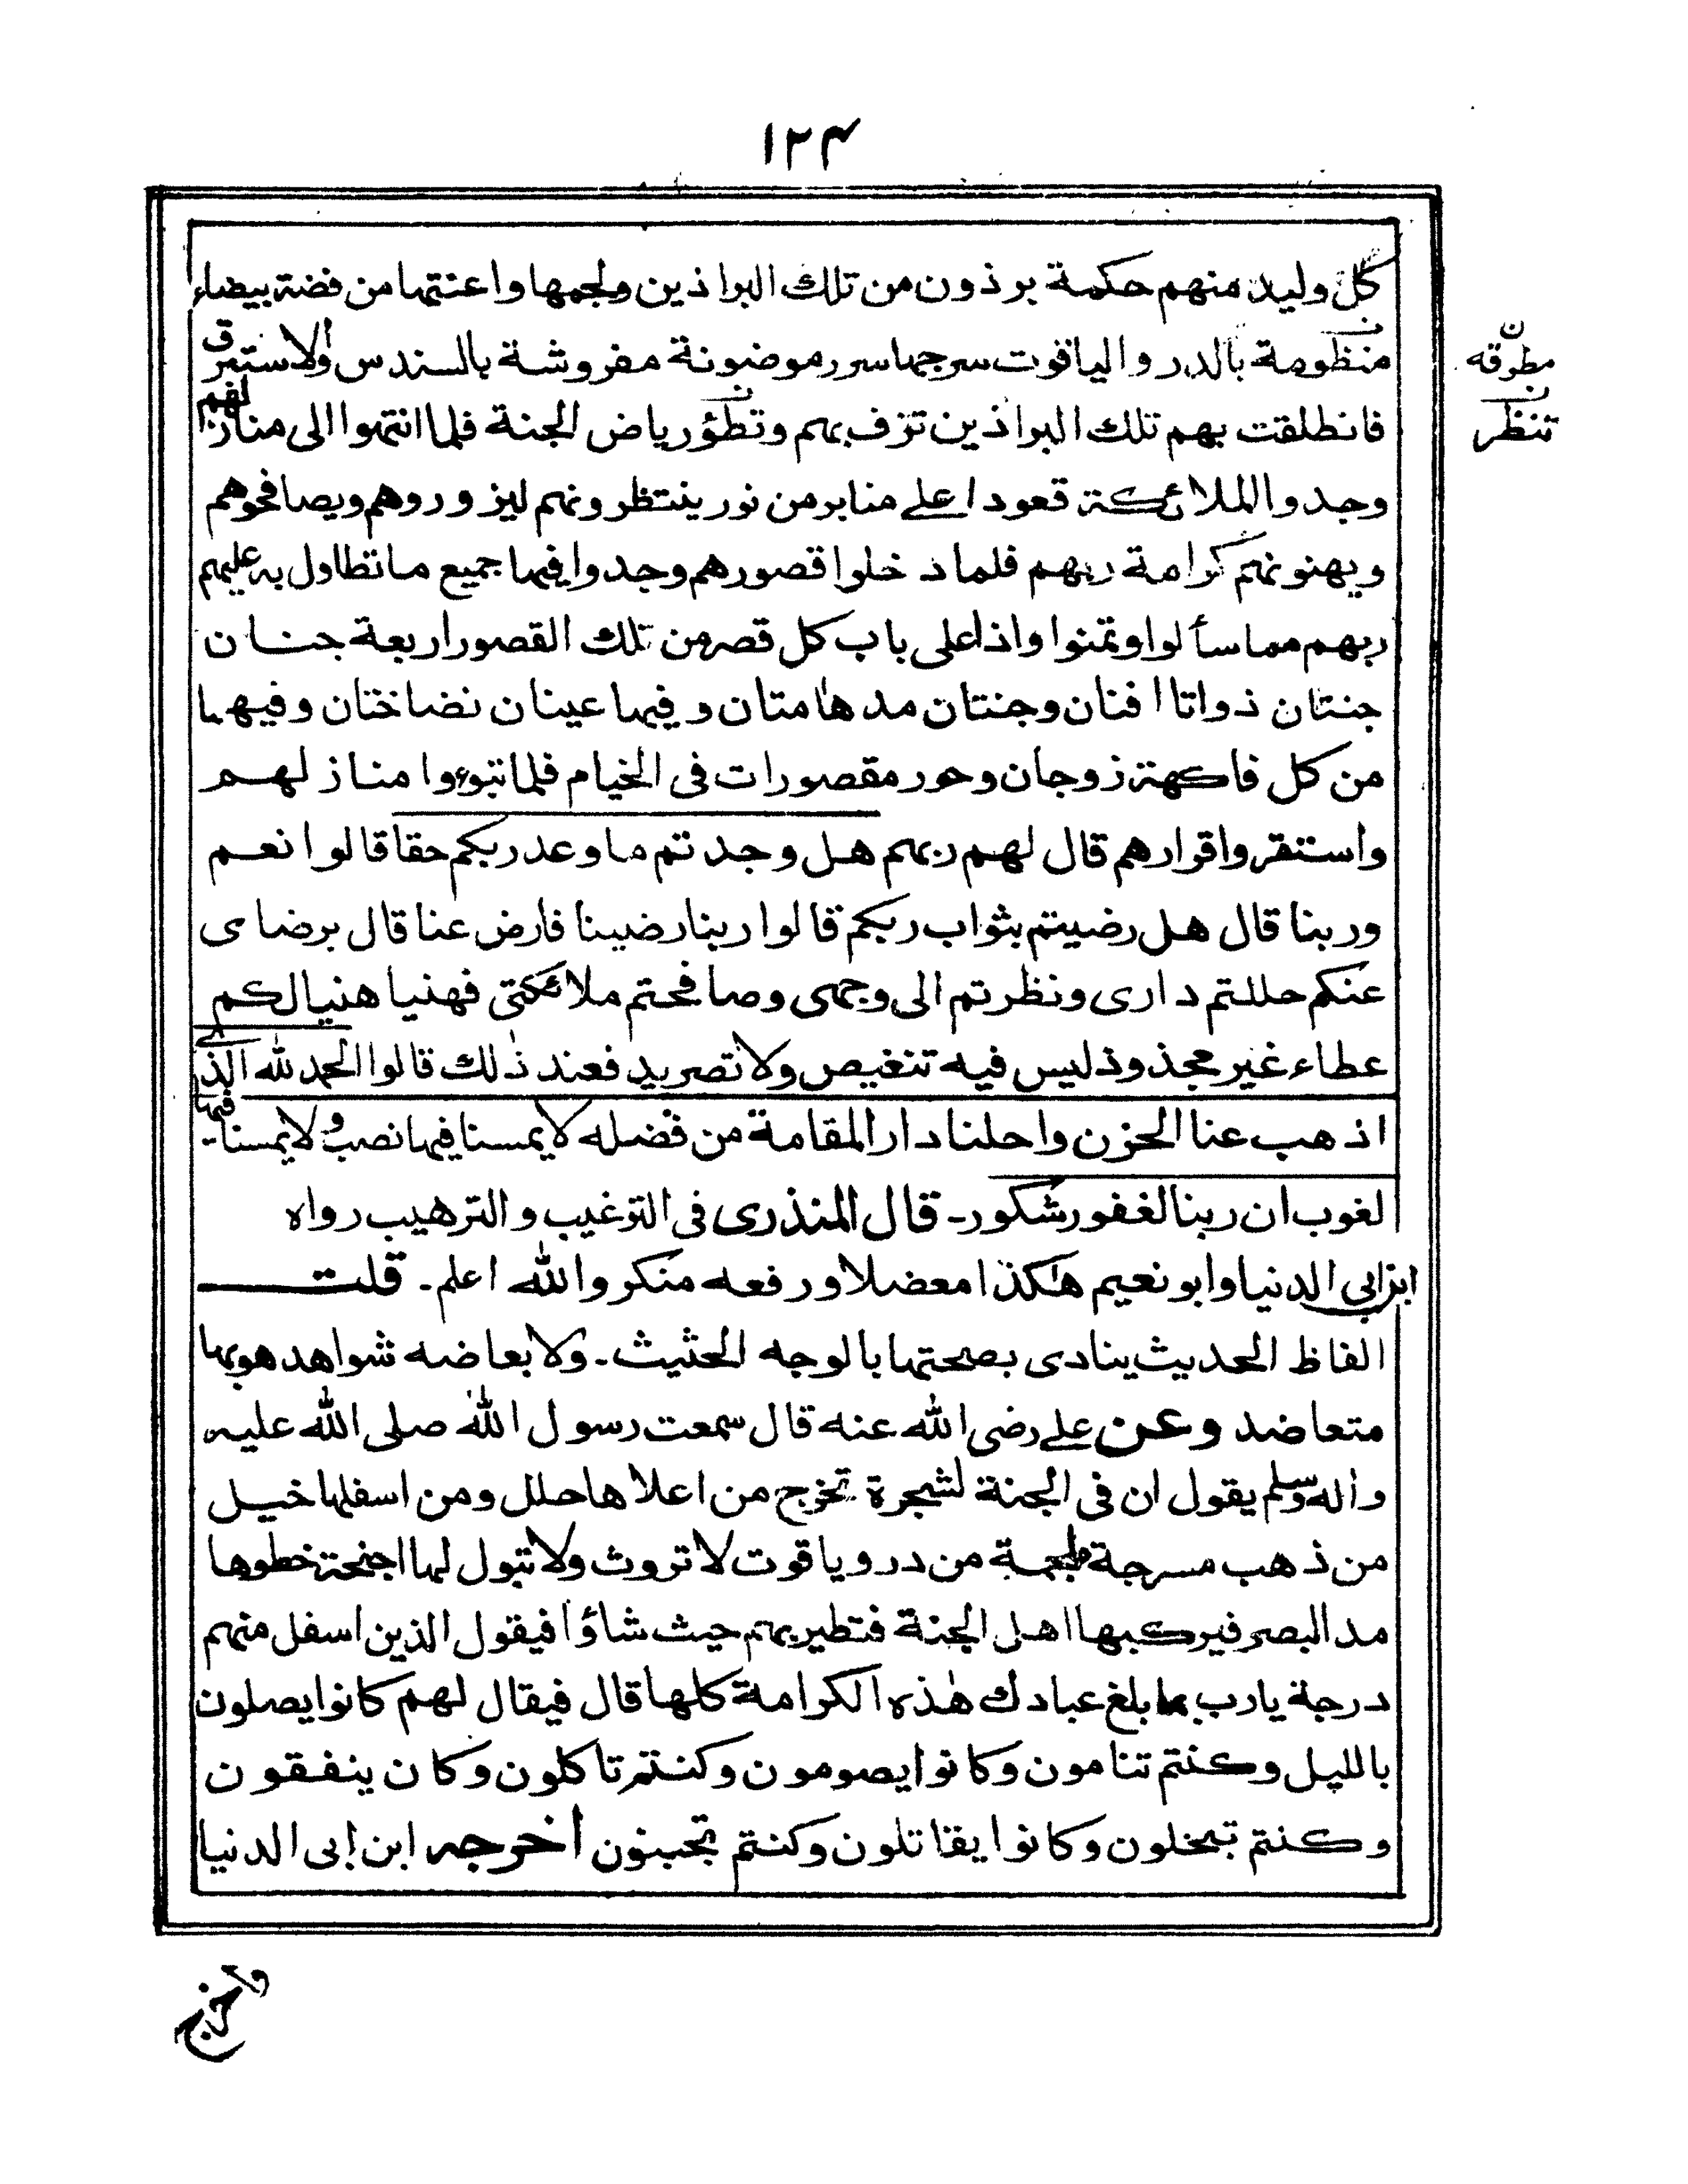 ۱۲۴
كل وليد منهم حكمة برذون من تلك البراذين ولجمها واعنتها من فضة بيضاء
منظومة بالدر والياقوت سرجها سرر موضونة مفروشة بالسندس والاستبرق
مطوقه ن
فانطلقت بهم تلك البراذين تزف بهم وتطؤ رياض الجنة فلما انتهوا الى منازلهم
تنظر ن
وجدوا الملائكة قعودا على منابر من نور ينتظرونهم ليزوروهم ويصافحوهم
ويهنونهم كرامة ربهم فلما دخلوا قصورهم وجدوا فيها جميع ما تطاول به عليهم
ربهم مما سألوا وتمنوا واذا على باب كل قصر من تلك القصور اربعة جنان
جنتان ذواتا افنان وجنتان مدهامتان وفيها عينان نضاختان وفيهما
من كل فاكهة زوجان وحور مقصورات فى الخيام فلما تبوءوا منازلهم
واستقروا قرارهم قال لهم ربهم هل وجدتم ما وعد ربكم حقا قالوا نعم
وربنا قال هل رضيتم بثواب ربكم قالوا ربنا رضينا فارض عنا قال برضاى
عنكم حللتم دارى ونظرتم الى وجهى وصافحتم ملائكتى فهنيا هنيا لكم
عطاء غير مجذوذ ليس فيه تنغيص ولا تصريد فعند ذلك قالوا الحمد لله الذى
اذهب عنا الحزن واحلنا دار المقامة من فضله لا يمسنا فيها نصب ولا يمسنا فيها
لغوب ان ربنا لغفور شكور۔ قال المنذرى فى الترغيب والترهيب رواه
ابن ابى الدنيا وابو نعيم هكذا معضلا ورفعه منكر والله اعلم۔ قلت
الفاظ الحديث ينادى بصحتها بالوجه الحثيث۔ ولا بعاضه شواهد هو بها
متعاضد وعن على رضى الله عنه قال سمعت رسول الله صلى الله عليه
واله وسلم يقول ان فى الجنة لشجرة تخرج من اعلاها حلل ومن اسفلها خيل
من ذهب مسرجة ملجمة من در وياقوت لا تروث ولا تبول لها اجنحة خطوها
مد البصر فيركبها اهل الجنة فتطير بهم حيث شاؤا فيقول الذين اسفل منهم
درجة يارب بما بلغ عبادك هذه الكرامة كلها قال فيقال لهم كانوا يصلون
بالليل وكنتم تنامون وكانوا يصومون وكنتم تاكلون وكان ينفقون
وكنتم تبخلون وكانوا يقاتلون وكنتم تجبنون أخرجه ابن ابى الدنيا
واخرج